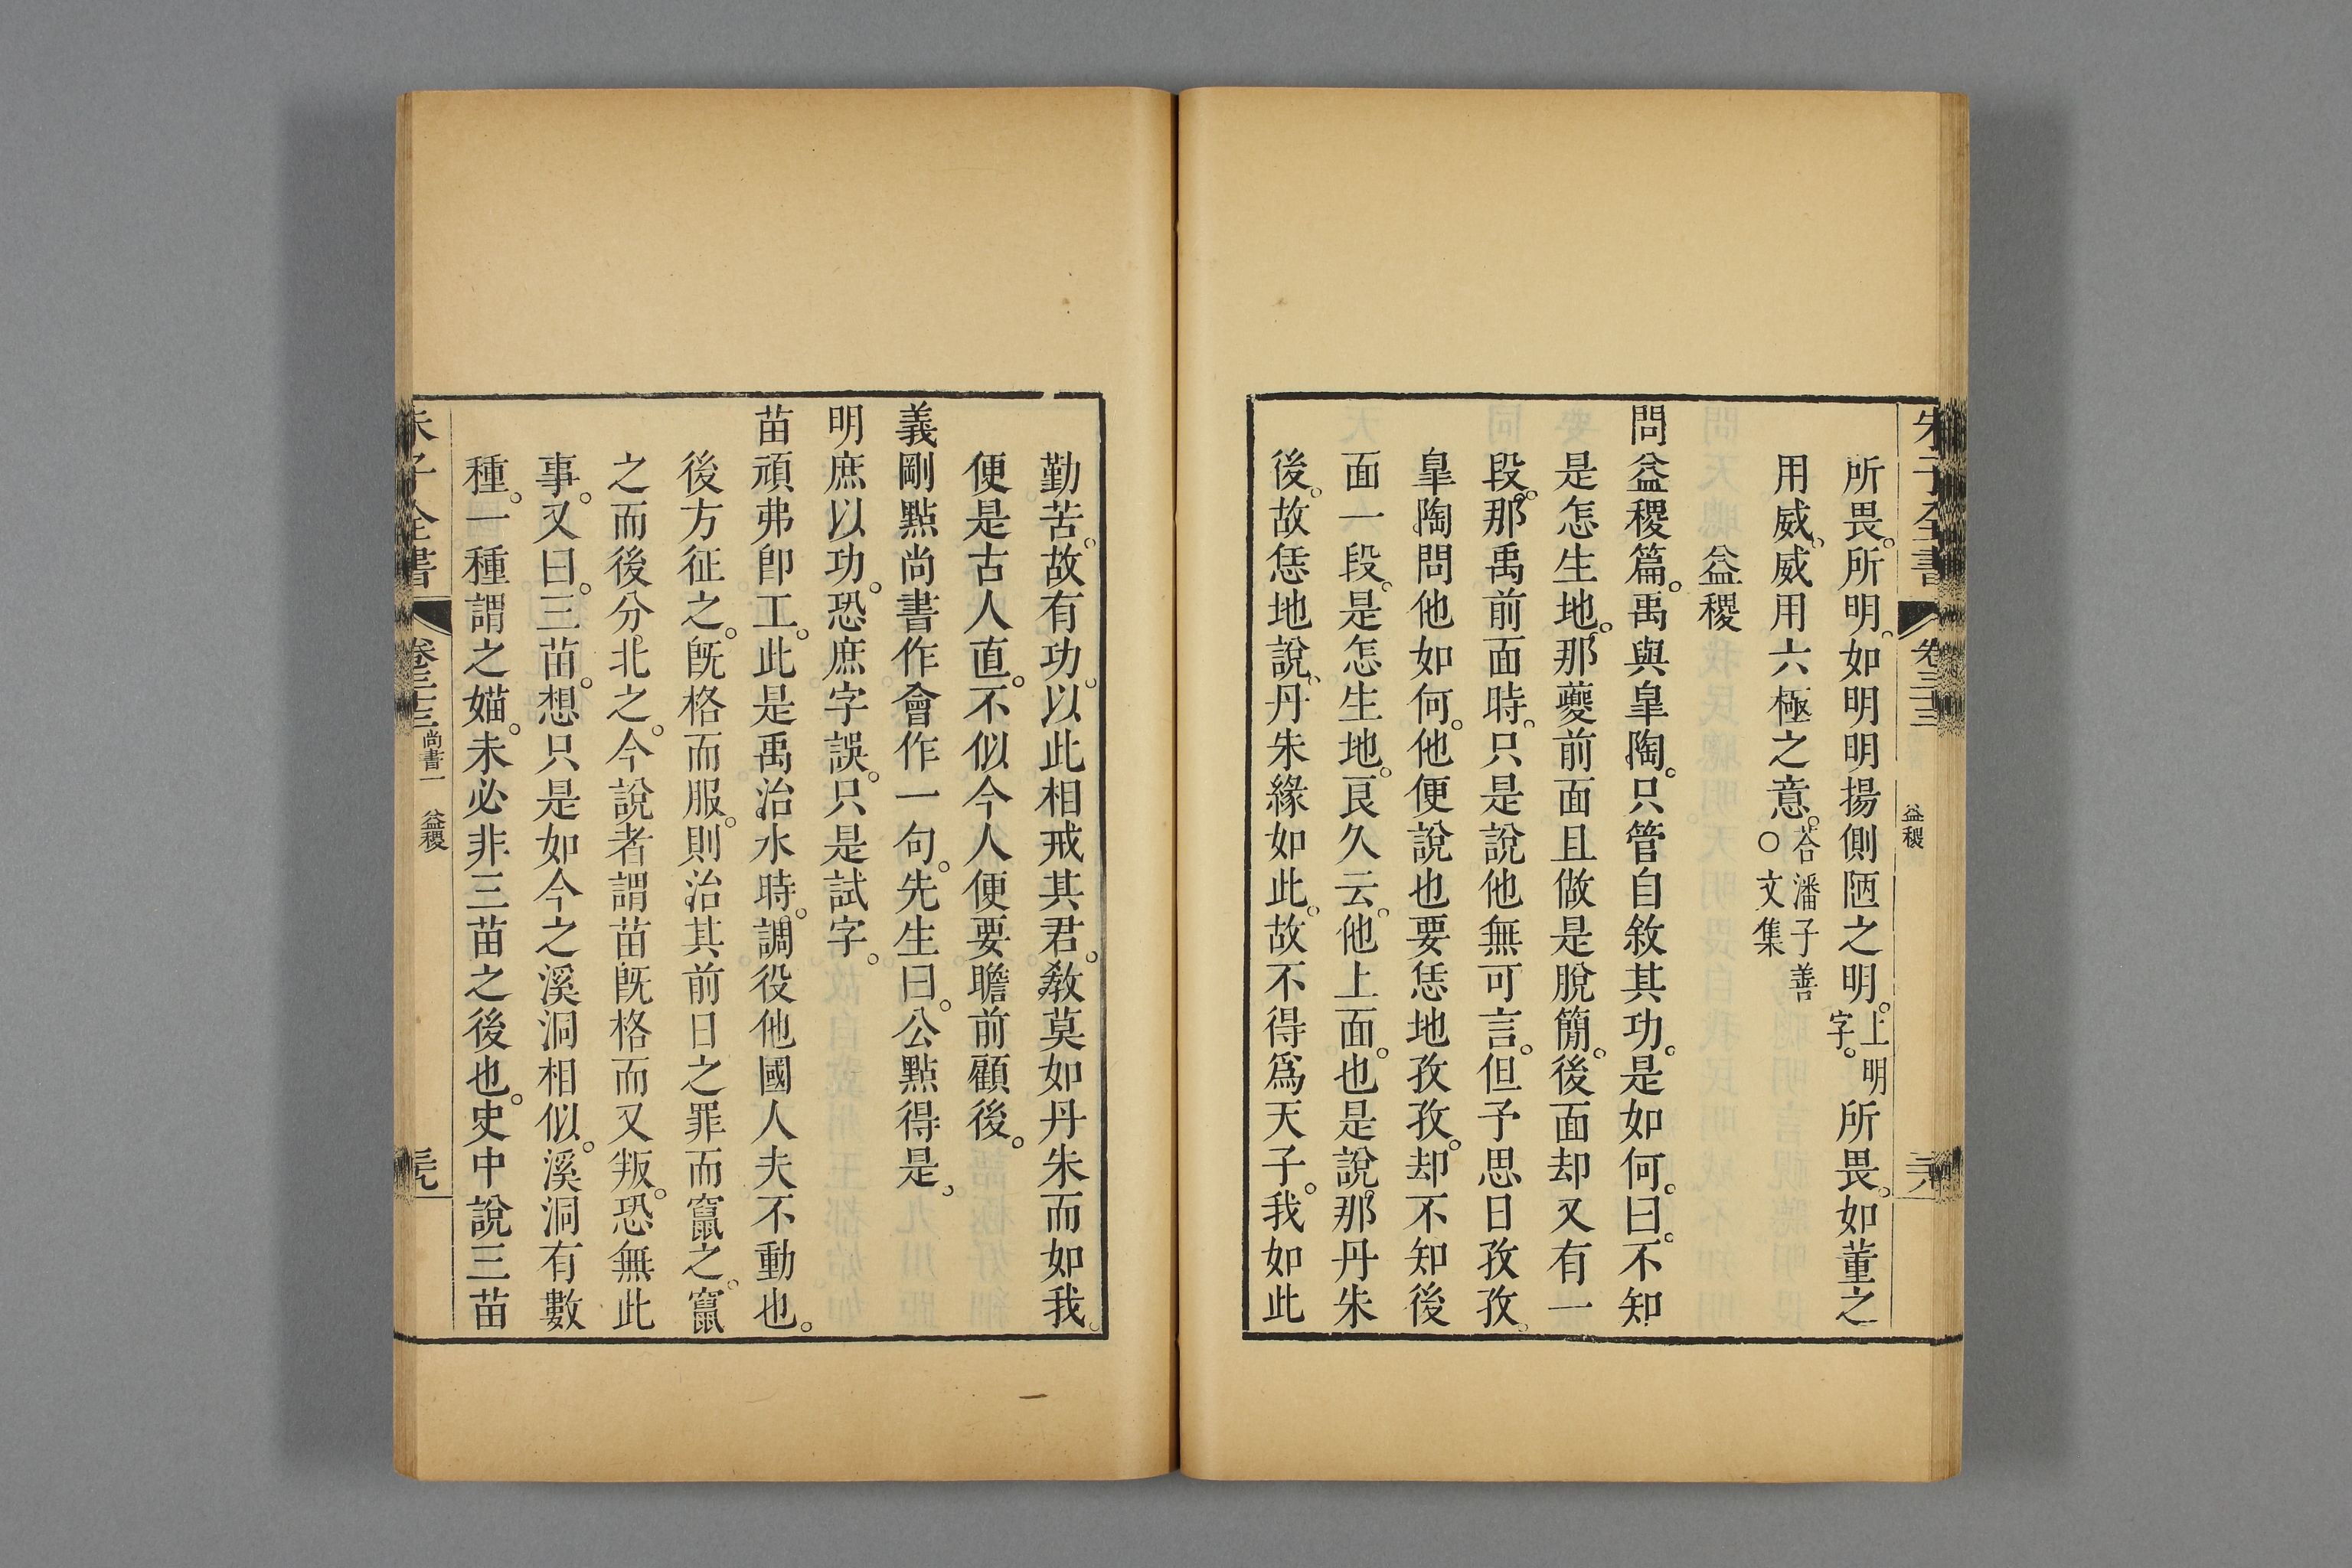 所畏。所明。如明明揚側陋之明。上明字。所畏。如董之
用威。威用六極之意。荅潘子善○文集
益稷
問益稷篇。禹與臯陶。只管自敘其功。是如何。曰。不知
是怎生地。那夔前面且做是脫簡。後面却又有一
段。那禹前面時。只是說他無可言。但予思日孜孜。
臯陶問他如何。他便說也要恁地孜孜。却不知後
面一段。是怎生地。良久云。他上面。也是說那丹朱
後。故恁地說。丹朱緣如此。故不得爲天子。我如此
勤苦。故有功。以此相戒其君。敎莫如丹朱而如我。
便是古人直。不似今人便要瞻前顧後。
義剛點尚書作會作一句。先生曰。公點得是。
明庶以功。恐庶字誤。只是試字。
苗頑弗卽工。此是禹治水時。調役他國人夫不動也。
後方征之。旣格而服。則治其前日之罪而竄之。竄
之而後分北之。今說者謂苗旣格而又叛。恐無此
事。又曰。三苗。想只是如今之溪洞相似。溪洞有數
種。一種謂之媌。未必非三苗之後也。史中說三苗
朱子全書
卷三十三
尚書一
益稷